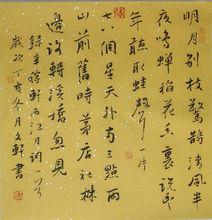 明月別枝驚鵲清風半
夜鳴蟬稻花香裏說豐
年聽取蛙聲一片
七八個星天外兩三點雨
山前舊時茅店社林
邊路轉溪橋忽見
錄辛稼軒西江月詞一首
歲次丁亥冬月文軒書